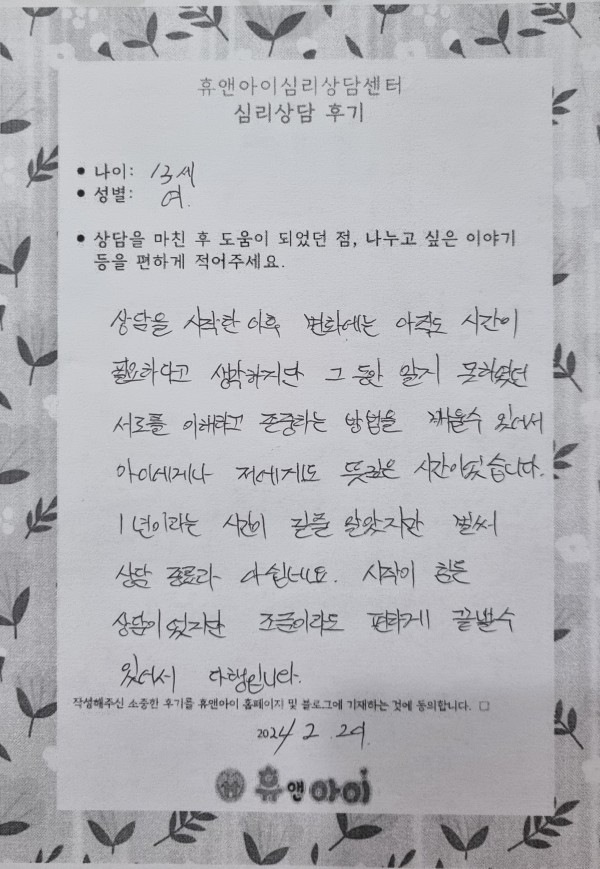 휴앤아이심리상담센터
심리상담 후기
• 나이: 13세
• 성별: 여.
• 상담을 마친 후 도움이 되었던 점, 나누고 싶은 이야기
등을 편하게 적어주세요.
상담을 시작한 이후 변화에는 아직도 시간이
필요하다고 생각하지만 그 동안 알지 못하였던
서로를 이해하고 존중하는 방법을 배울수 있어서
아이에게나 저에게도 뜻깊은 시간이었습니다.
1년이라는 시간이 길줄 알았지만 벌써
상담 종료라 아쉽네요. 시작이 힘든
상담이었지만 조금이라도 편하게 끝낼수
있어서 다행입니다.
작성해주신 소중한 후기를 휴앤아이 홈페이지 및 블로그에 기재하는 것에 동의합니다. □
2024 2. 29.
휴앤아이